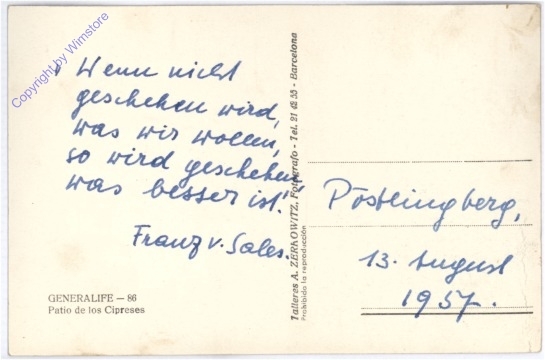 Copyright by Wimstore
" Wenn nicht
geschehen wird,
was wir wollen,
so wird geschehen
was besser ist."
Franz v. Sales.
GENERALIFE — 86
Patio de los Cipreses
Talleres A. ZERKOWITZ, Fotógrafo - Tel. 21 48 55 - Barcelona
Prohibida la reproducción
Pöstlingberg,
13. August
1957.